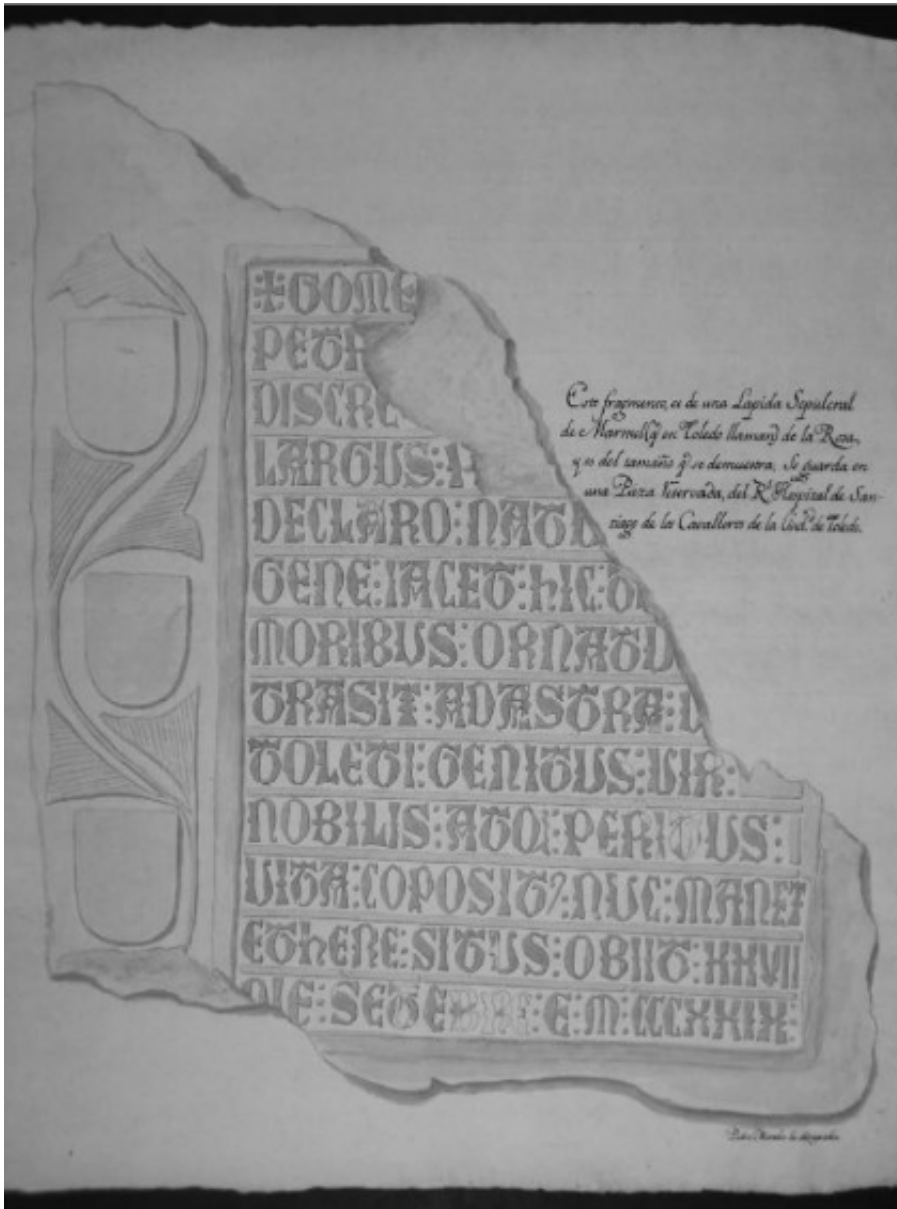 ✠GOME
PETR
DISCRE
LARGUS:
DECLARO:NAT
GENE:IACET:hIC:
MORIBUS:ORNATU
TRASIT:ADASTRA:
TOLETI:GENITUS:UIR:
NOBILIS:ATQ:PERITUS:
UITA:COPOSIT:NUC:MANET
EThERE:SITUS:OBIIT:XXVII
DIE:SETEBRE:E:M:CCCXXIX:
Este fragmento, es de una Lapida Sepulcral
de Marmol q̃ en Toledo llaman de la Rosa,
y es del tamaño q̃ se demuestra. Se guarda en
una Pieza reservada, del Rˡ Hospital de San-
tiago de los Cavalleros de la Ciudᵈ de Toledo.